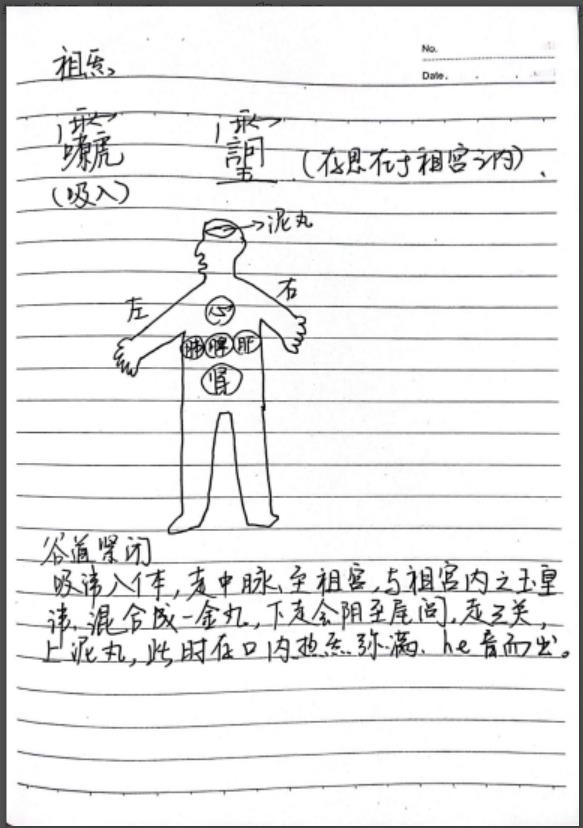 No.
Date.
祖炁
(吸入) (存思在于祖宫之内).
泥丸
左 右
心
肺 脾 肝
肾
谷道紧闭
吸讳入体,走中脉,至祖宫,与祖宫内之玉皇
讳,混合成一金丸,下走会阴至尾闾,走三关,
上泥丸,此时在口内热炁弥满、he音而出。